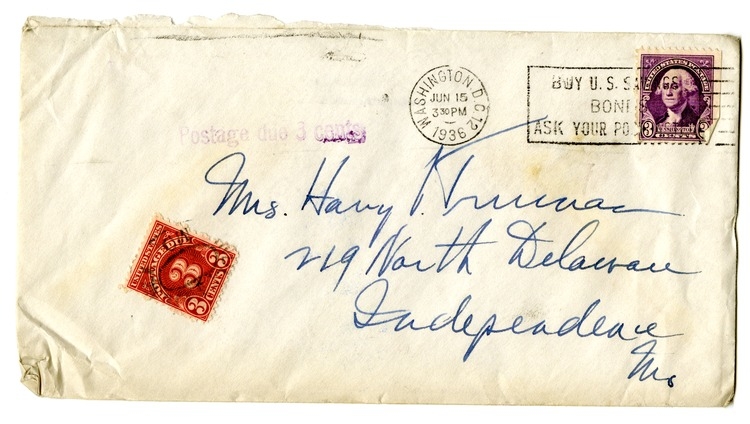 WASHINGTON D.C. 12
JUN 15
3 30 PM
1936
BUY U.S. SAVINGS
BONDS
ASK YOUR PO
UNITED STATES POSTAGE
3 3
CENTS
Postage due 3 cents
Mrs. Harry S. Truman
219 North Delaware
Independence
Mo
UNITED STATES
POSTAGE DUE
3
3 CENTS 3